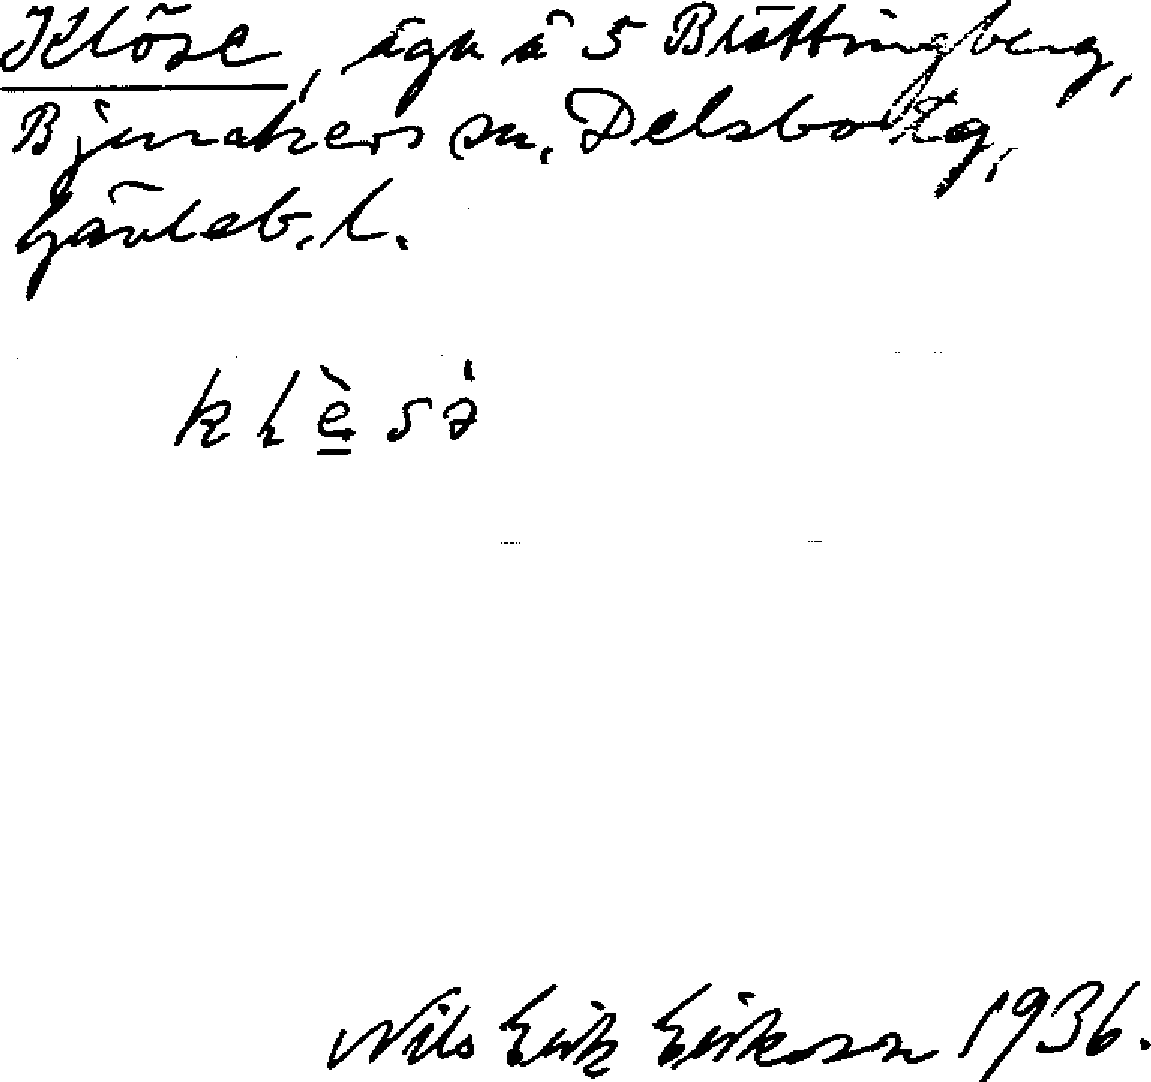 Klöse, ägn å 5 Brättingberg,
Bjuråkers sn, Delsbo tg,
Gävleb. l.
Nils Erik Erikson 1936.